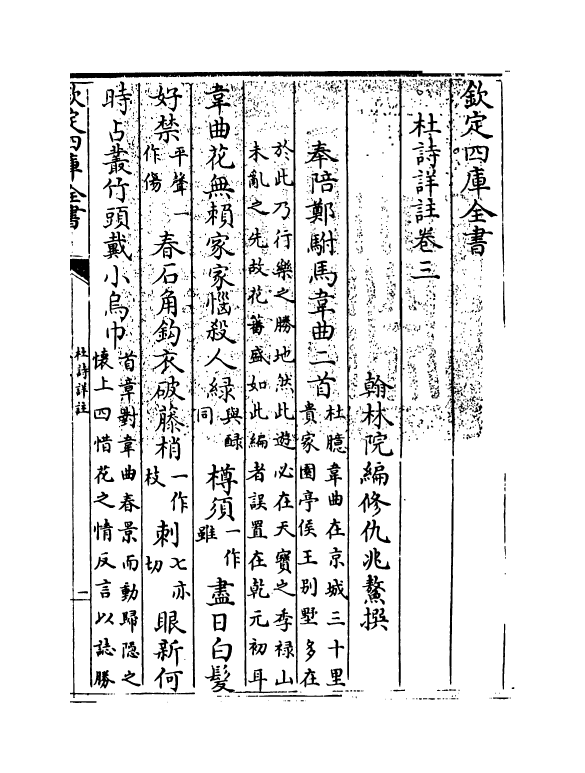 欽定四庫全書
杜詩詳註卷三
翰林院編修仇兆鰲撰
奉陪鄭駙馬韋曲二首
杜臆韋曲在京城三十里
貴家園亭侯王别墅多在
於此乃行樂之勝地然此遊必在天寶之季禄山
未亂之先故花蕃盛如此編者誤置在乾元初耳
韋曲花無賴家家惱殺人緑與醁同樽須一作雖盡日白髮
好禁平聲一作傷春石角鈎衣破藤梢一作枝刺七亦切眼新何
時占叢竹頭戴小烏巾
首章對韋曲春景而動歸隐之
懐上四惜花之情反言以誌勝
欽定四庫全書
杜詩詳註
一